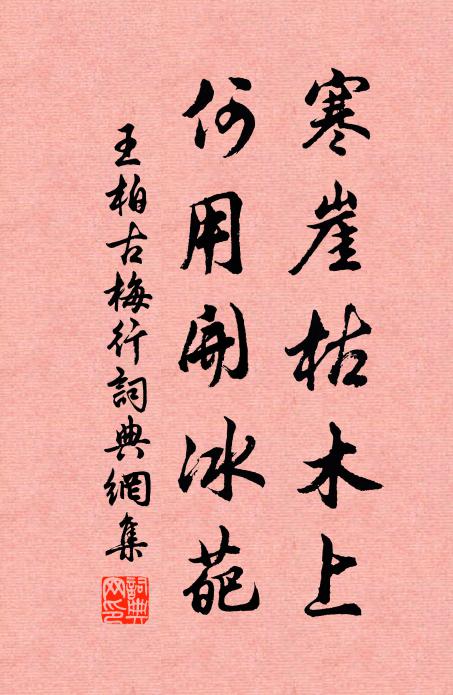 寒崖枯木上
何用開冰葩
王柏古梅行詞典網集
詞典
网印